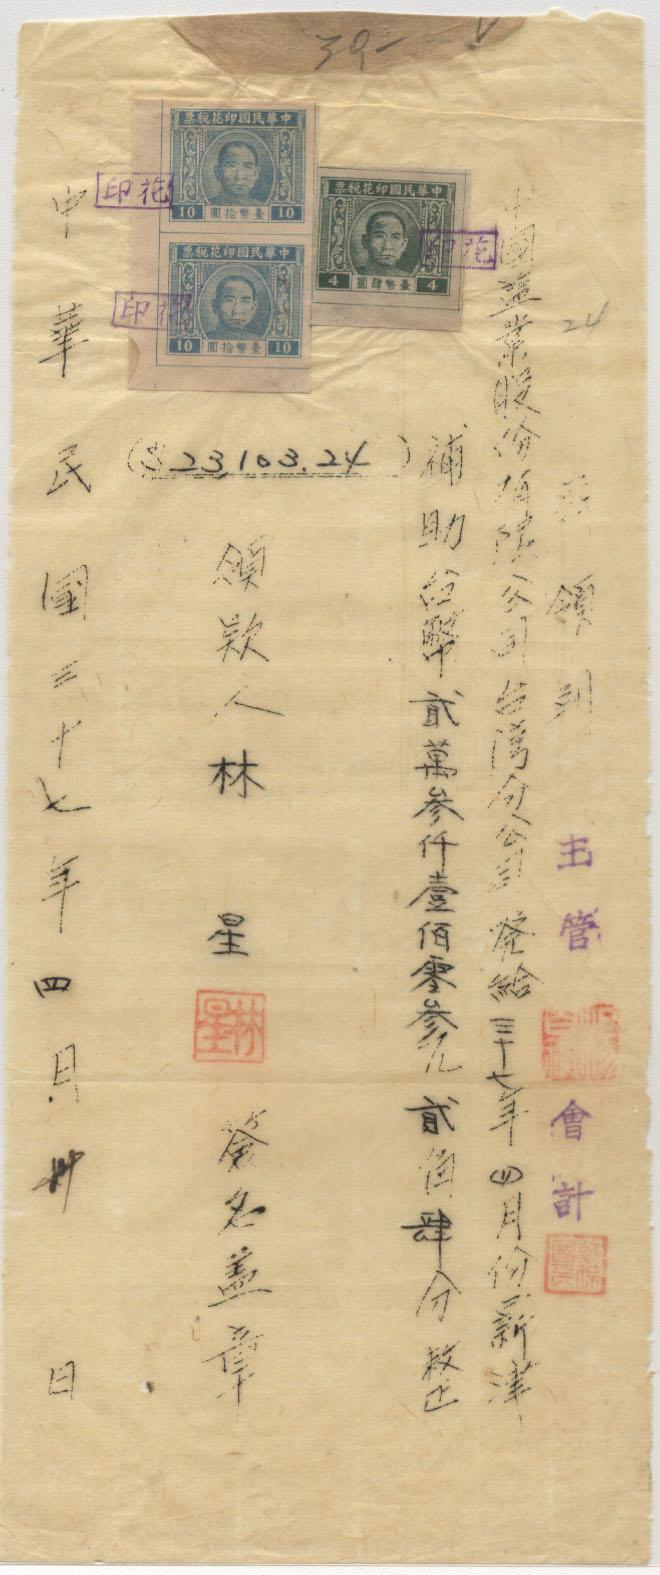 39-
24
茲領到
主管
會計
中國鹽業股份有限公司台灣分公司發給三十七年四月份薪津
補助台幣貳萬參仟壹佰零參元貳角肆分整
($23,103.24)
領款人林星
林星
簽名蓋章
中華民國三十七年四月卅日
票稅花印國民華中
10 圓拾幣臺 10
票稅花印國民華中
10 圓拾幣臺 10
票稅花印國民華中
4 圓肆幣臺 4
印花
印花
印花